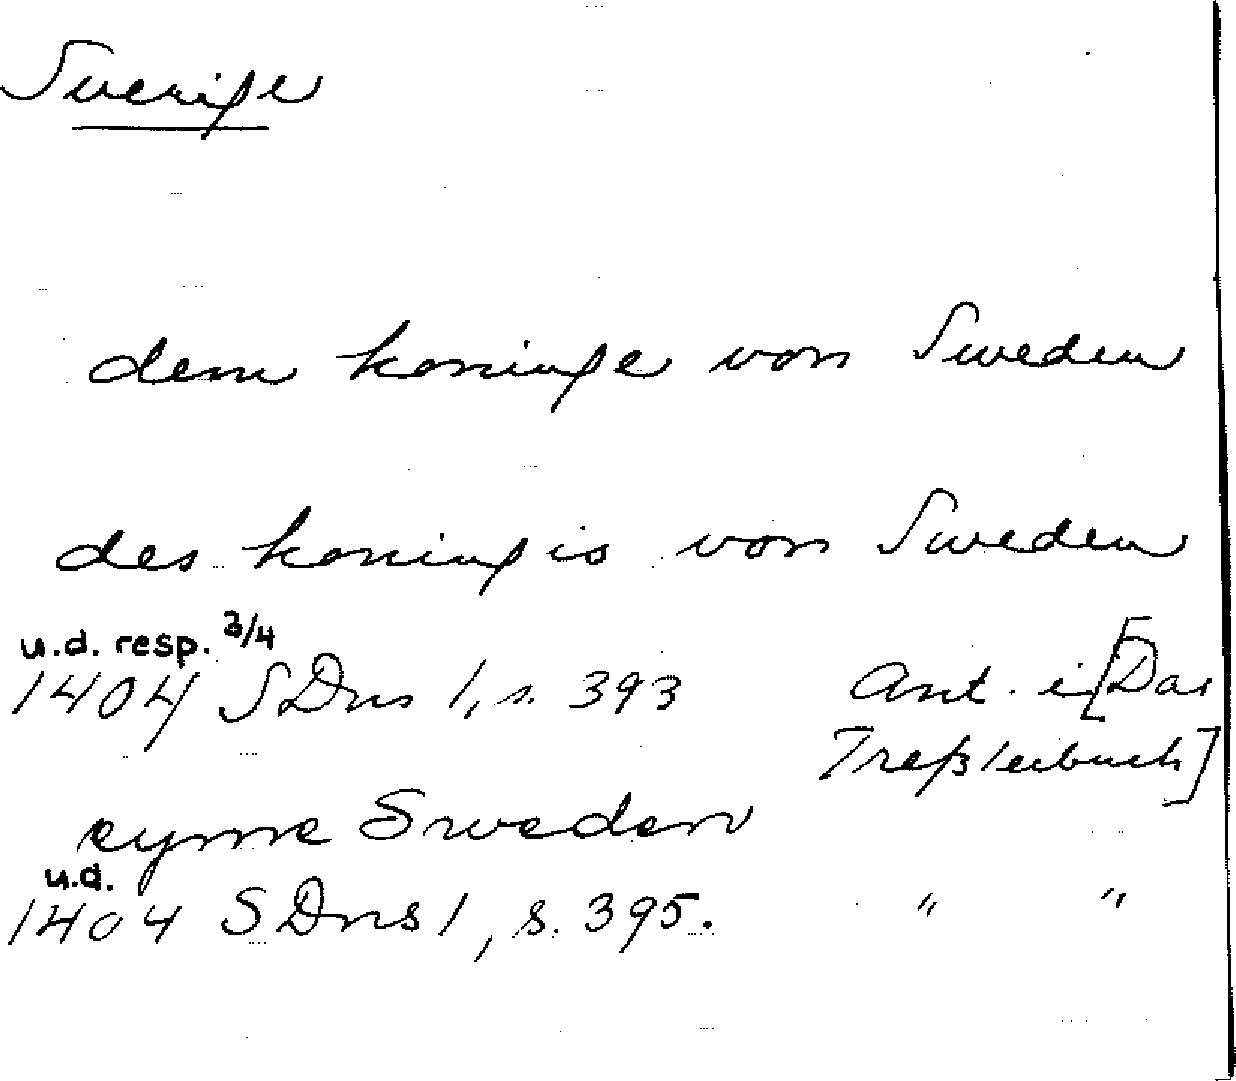 Sverige
dem koninge von Sweden
des koningis von Sweden
u.d. resp. 3/4
1404 SDns 1, s. 393 Ant. i [Das
Treßlerbuch]
eyme Sweden
u.d.
1404 SDns 1, s. 395. " "